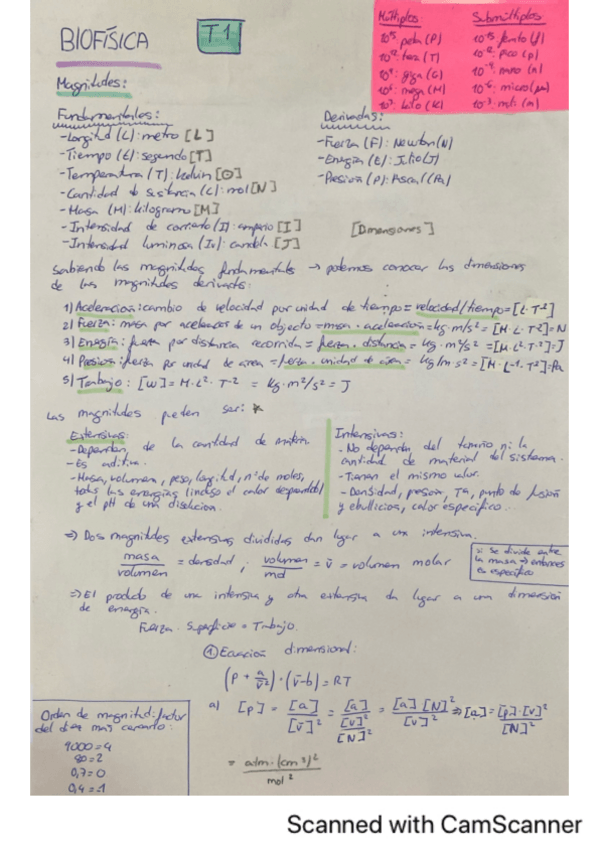 BIOFÍSICA
T1
Múltiplos:
10¹⁵: peta (P)
10¹²: tera (T)
10⁹: giga (G)
10⁶: mega (M)
10³: kilo (K)
Submúltiplos
10⁻¹⁵: femto (f)
10⁻¹²: pico (p)
10⁻⁹: nano (n)
10⁻⁶: micro (μ)
10⁻³: mili (m)
Magnitudes:
Fundamentales:
-Longitud (L): metro [L]
-Tiempo (t): segundo [T]
-Temperatura (T): kelvin [Θ]
-Cantidad de sustancia (c): mol [N]
-Masa (M): kilogramo [M]
-Intensidad de corriente (I): amperio [I]
-Intensidad luminosa (Iv): candela [J]
Derivadas:
-Fuerza (F): Newton (N)
-Energía (E): Julio (J)
-Presión (P): Pascal (Pa)
[Dimensiones]
Sabiendo las magnitudes fundamentales → podemos conocer las dimensiones
de las magnitudes derivadas:
1) Aceleración: cambio de velocidad por unidad de tiempo = velocidad/tiempo = [L·T⁻²]
2) Fuerza: masa por aceleración de un objecto = masa · aceleración = kg·m/s² = [M·L·T⁻²] = N
3) Energía: fuerza por distancia recorrida = fuerza · distancia = kg·m²/s² = [M·L²·T⁻²] = J
4) Presión: fuerza por unidad de área = fuerza · unidad de área = kg/m·s² = [M·L⁻¹·T⁻²] = Pa
5) Trabajo: [W] = M·L²·T⁻² = kg·m²/s² = J
Las magnitudes pueden ser:
Extensivas:
-Dependen de la cantidad de materia
-Es aditiva.
-Masa, volumen, peso, longitud, nº de moles,
todas las energías (incluso el calor desprendido)
y el pH de una disolución.
Intensivas:
-No dependen del tamaño ni la
cantidad de material del sistema.
-Tienen el mismo valor.
-Densidad, presión, Tª, punto de fusión
y ebullición, calor específico.
⇒ Dos magnitudes extensivas divididas dan lugar a una intensiva.
masa/volumen = densidad ; volumen/mol = v̄ = volumen molar
si se divide entre
la masa → entonces
es específico
⇒ El producto de una intensiva y otra extensiva da lugar a una dimensión
de energía.
Fuerza · Superficie = Trabajo.
① Ecuación dimensional:
(P + a/v̄²) · (v̄-b) = RT
a) [P] = [a]/[v̄]² = [a]/([v]²/[N]²) = [a][N]²/[v]² ⇒ [a] = [P]·[v]²/[N]²
= atm·(cm³)²/mol²
Orden de magnitud: factor
del 10 más cercano:
9000 = 4
80 = 2
0,7 = 0
0,4 = -1
Scanned with CamScanner